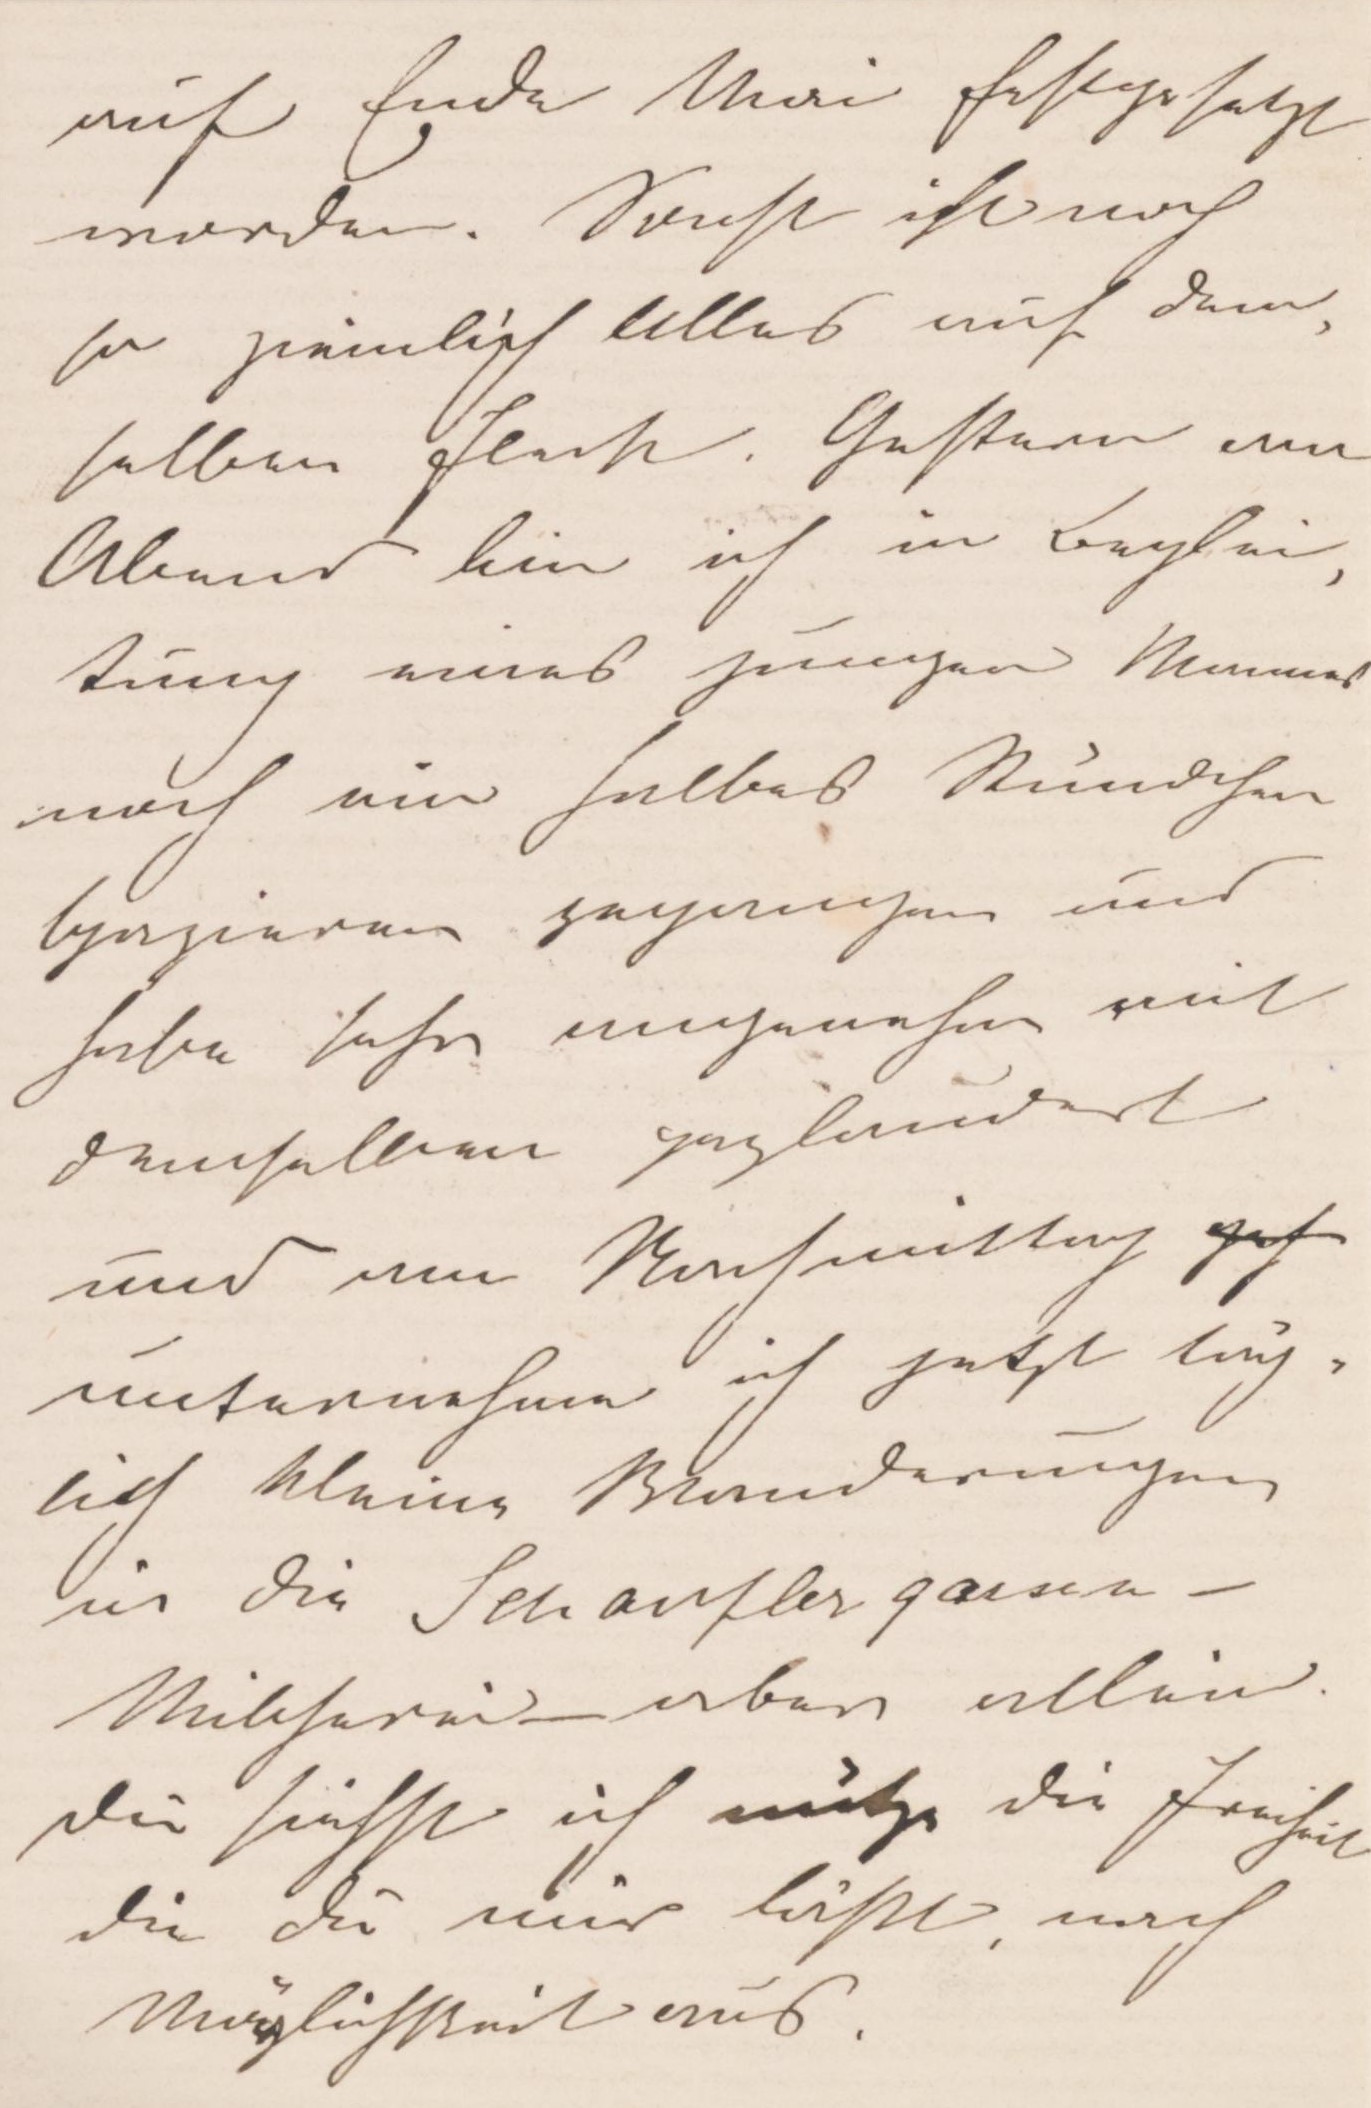 auf Ende Mai festgesetzt
worden. Sonst ist noch
so ziemlich Alles auf dem¬
selben Fleck. Gestern am
Abend bin ich in Beglei¬
tung eines jungen Mannes
noch ein halbes Stündchen
spazieren gegangen und
habe sehr angenehm mit
demselben geplaudert
und am Nachmittag
unternehme ich jetzt täg¬
lich kleine Wanderungen
in die Schauflergasse –
Milcherei – aber allein.
Du siehst ich nütze die Freiheit
die Du mir läßt, nach
Möglichkeit aus.